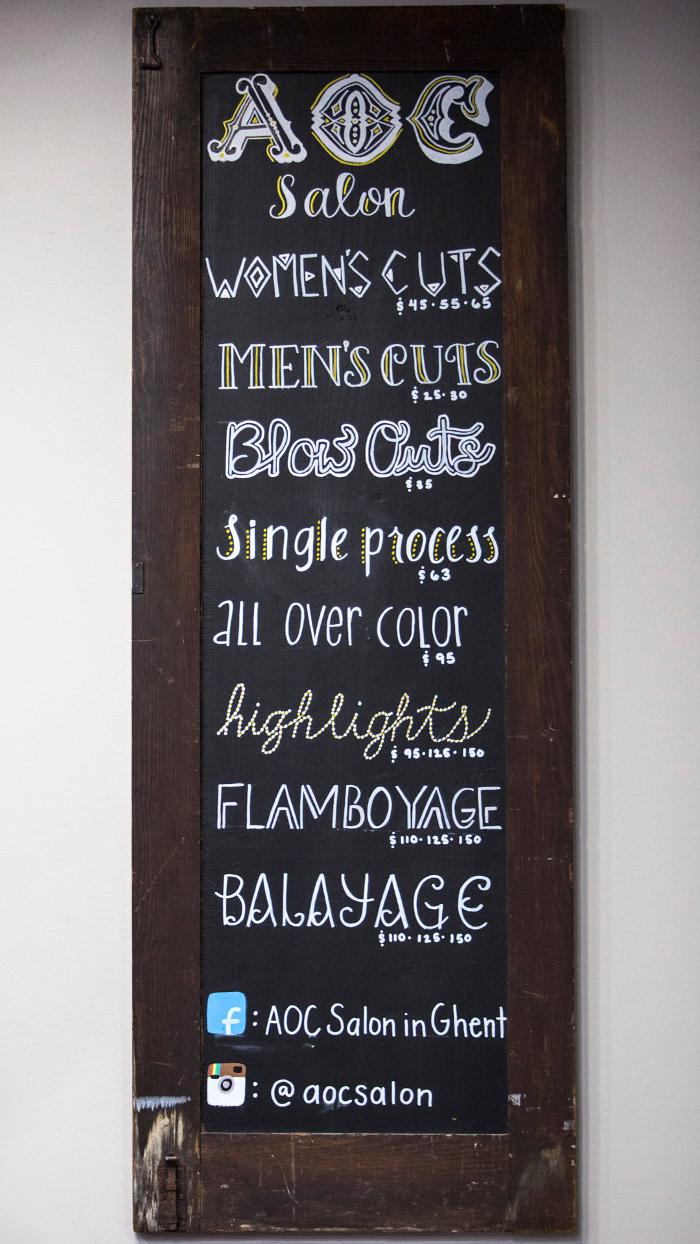 AOC
Salon
WOMEN'S CUTS
$45·55·65
MEN'S CUTS
$25·30
Blow Outs
$35
Single process
$63
all over color
$95
highlights
$95·125·150
FLAMBOYAGE
$110·125·150
BALAYAGE
$110·125·150
f : AOC Salon in Ghent
: @aocsalon